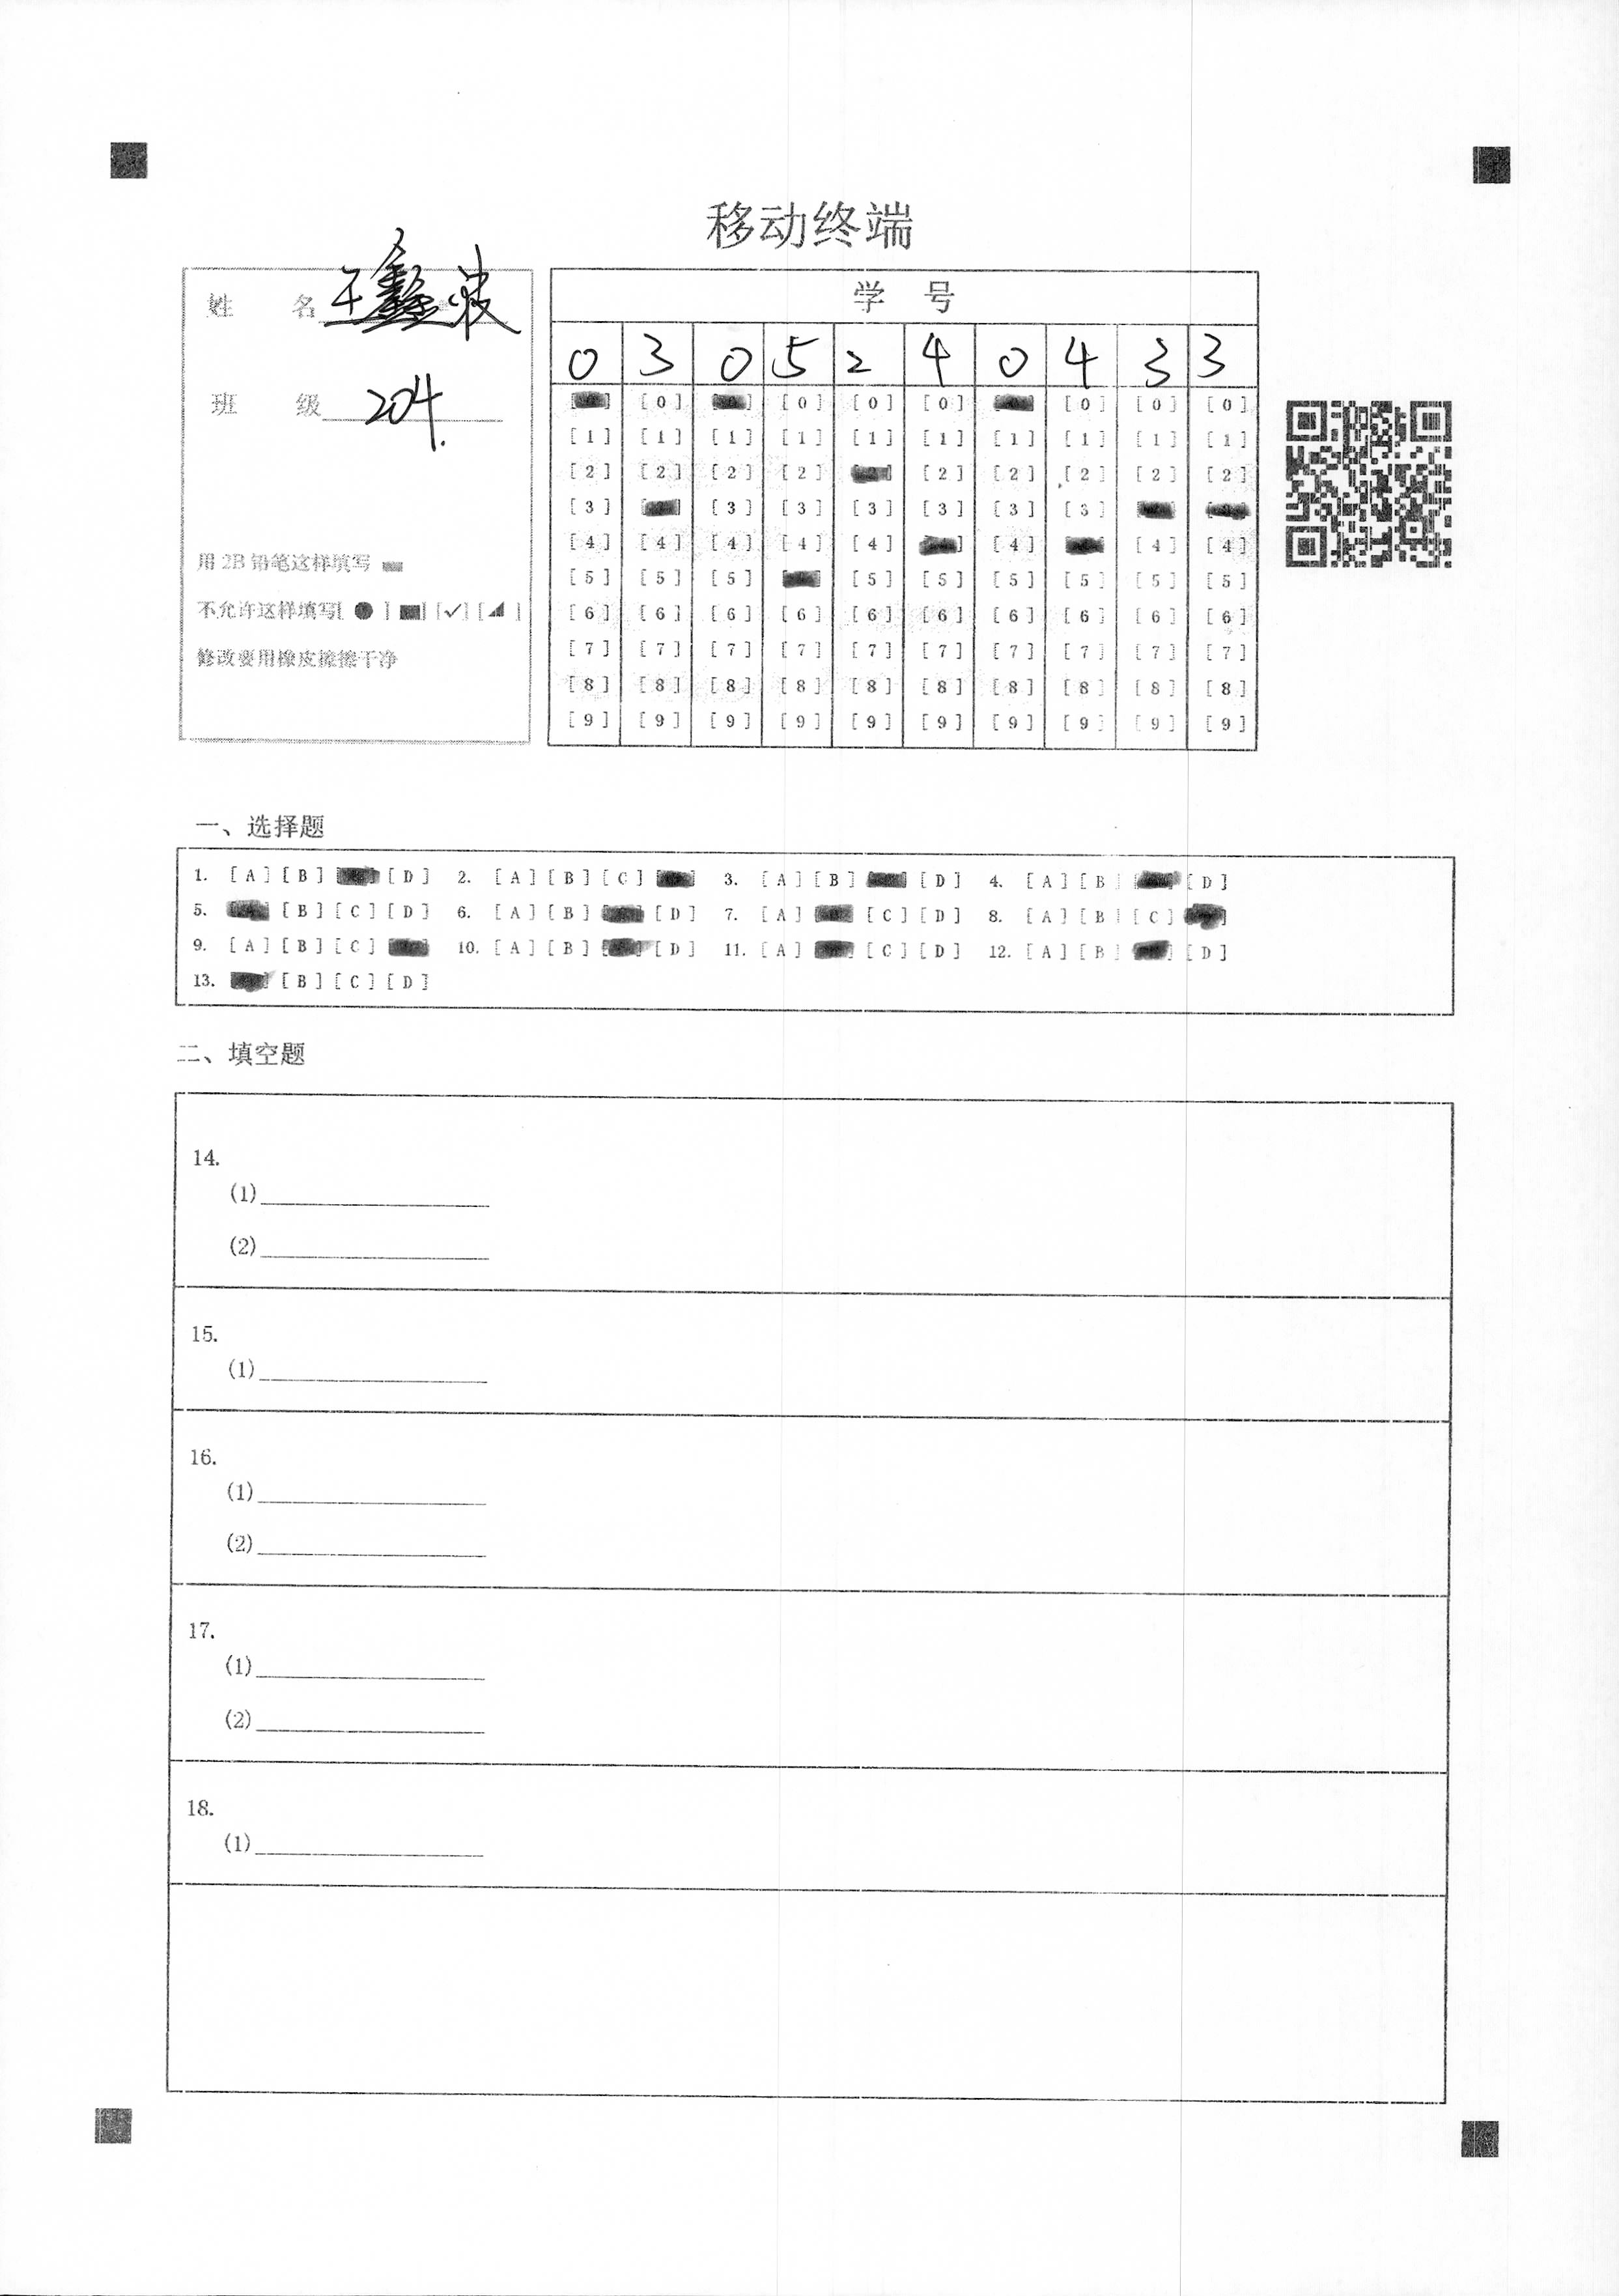 移动终端
姓 名 王鑫波
班 级 204.
用 2B 铅笔这样填写
不允许这样填写[ ● ] [■] [✓] [◢ ]
修改要用橡皮擦擦干净
学 号
0 3 0 5 2 4 0 4 3 3
[0] [0] [0] [0] [0] [0] [0]
[1] [1] [1] [1] [1] [1] [1] [1] [1] [1]
[2] [2] [2] [2] [2] [2] [2] [2] [2]
[3] [3] [3] [3] [3] [3] [3]
[4] [4] [4] [4] [4] [4] [4] [4]
[5] [5] [5] [5] [5] [5] [5] [5] [5]
[6] [6] [6] [6] [6] [6] [6] [6] [6] [6]
[7] [7] [7] [7] [7] [7] [7] [7] [7] [7]
[8] [8] [8] [8] [8] [8] [8] [8] [8] [8]
[9] [9] [9] [9] [9] [9] [9] [9] [9] [9]
一、选择题
1. [A] [B] [D] 2. [A] [B] [C] 3. [A] [B] [D] 4. [A] [B] [D]
5. [B] [C] [D] 6. [A] [B] [D] 7. [A] [C] [D] 8. [A] [B] [C]
9. [A] [B] [C] 10. [A] [B] [D] 11. [A] [C] [D] 12. [A] [B] [D]
13. [B] [C] [D]
二、填空题
14.
(1)
(2)
15.
(1)
16.
(1)
(2)
17.
(1)
(2)
18.
(1)